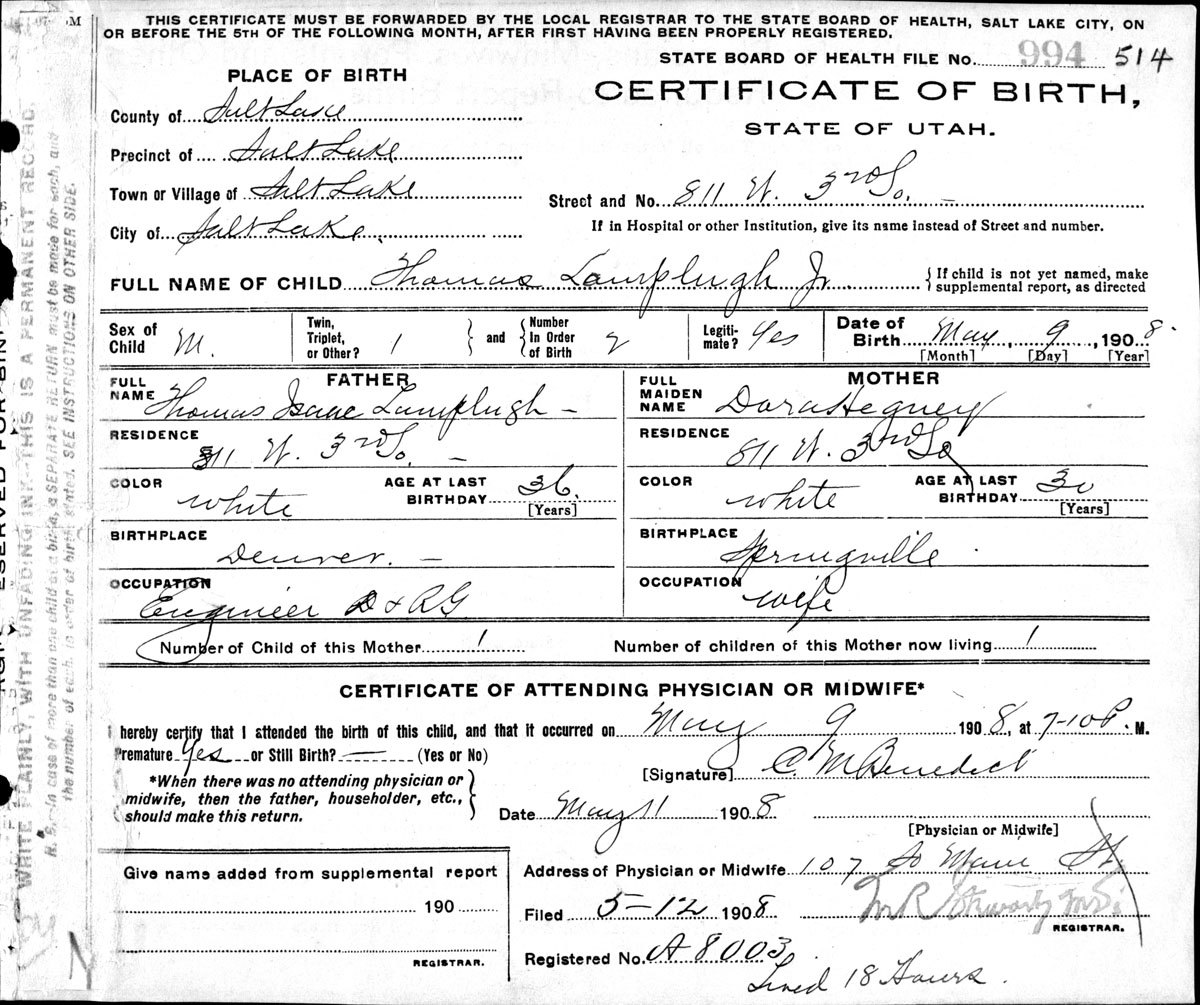 THIS CERTIFICATE MUST BE FORWARDED BY THE LOCAL REGISTRAR TO THE STATE BOARD OF HEALTH, SALT LAKE CITY, ON
OR BEFORE THE 5TH OF THE FOLLOWING MONTH, AFTER FIRST HAVING BEEN PROPERLY REGISTERED.
STATE BOARD OF HEALTH FILE No. 994 514
PLACE OF BIRTH
CERTIFICATE OF BIRTH,
STATE OF UTAH.
County of Salt Lake
Precinct of Salt Lake
Town or Village of Salt Lake
Street and No. 811 W. 3rd So.
City of Salt Lake.
If in Hospital or other Institution, give its name instead of Street and number.
FULL NAME OF CHILD Thomas Lamplugh Jr. { If child is not yet named, make
supplemental report, as directed
Sex of Child M. Twin, Triplet, or Other? 1 } and { Number In Order of Birth 2 Legiti-mate? Yes Date of Birth May 9, 1908.
[Month] [Day] [Year]
FATHER
FULL NAME Thomas Isaac Lamplugh –
RESIDENCE 811 W. 3rd So. –
COLOR White AGE AT LAST BIRTHDAY 36.
[Years]
BIRTHPLACE Denver. –
OCCUPATION Engineer D & RG
MOTHER
FULL MAIDEN NAME Dora Hegney
RESIDENCE 811 W. 3rd So
COLOR White AGE AT LAST BIRTHDAY 30
[Years]
BIRTHPLACE Springville
OCCUPATION Wife
Number of Child of this Mother 1 Number of children of this Mother now living 1
CERTIFICATE OF ATTENDING PHYSICIAN OR MIDWIFE*
I hereby certify that I attended the birth of this child, and that it occurred on May 9 1908, at 7-10 P. M.
Premature Yes or Still Birth? — (Yes or No)
[Signature] C. M Benedict
*When there was no attending physician or
midwife, then the father, householder, etc.,
should make this return.
Date May 11 1908
[Physician or Midwife]
Address of Physician or Midwife 107 So Main St
Give name added from supplemental report
190
REGISTRAR.
Filed 5-12 1908
REGISTRAR.
Registered No. A 8003
Lived 18 Hours.
WRITE PLAINLY, WITH UNFADING INK—THIS IS A PERMANENT RECORD.
N. B.—In case of more than one child at a birth, a SEPARATE RETURN must be made for each, and
the number of each, in order of birth, stated. SEE INSTRUCTIONS ON OTHER SIDE.